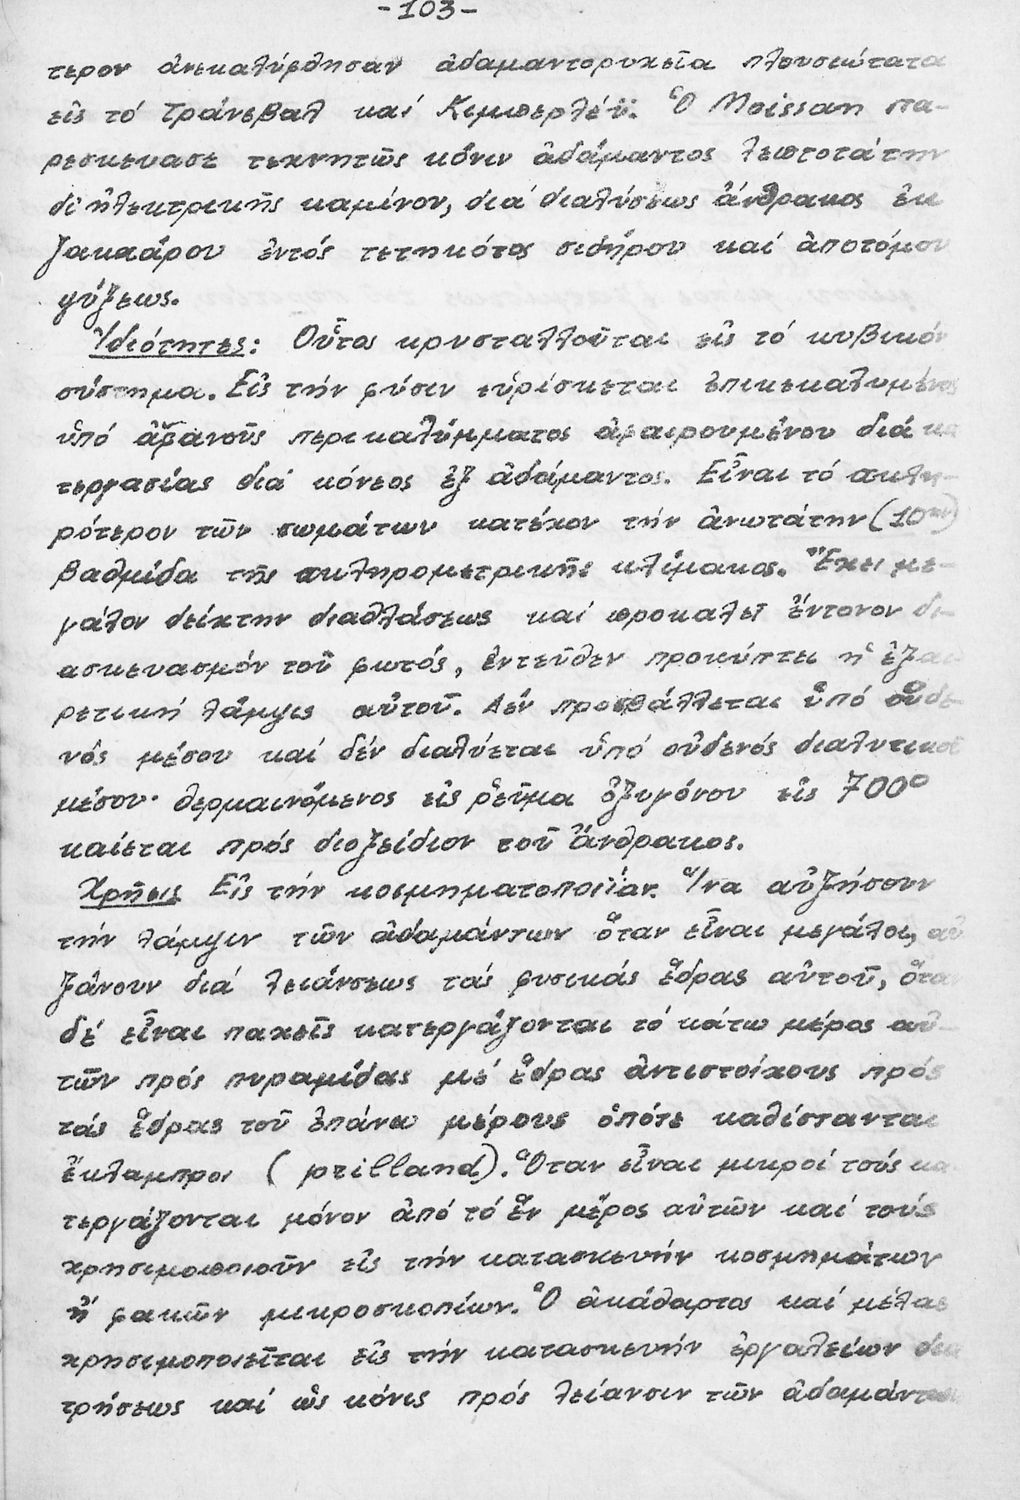 -103-
τερον ἀνεκαλύφθησαν ἀδαμαντορυχεῖα πλουσιώτατα
εἰς τό Τράνσβαλ καί Κιμπερλέϋ. Ὁ Moissan πα-
ρεσκευασε τεχνητῶς κόνιν ἀδάμαντος λεπτοτάτην
δι' ἠλεκτρικῆς καμίνου, διά διαλύσεως ἄνθρακος ἐκ
ζακχάρου ἐντός τετηκότος σιδήρου καί ἀποτόμου
ψύξεως.
Ἰδιότητες: Οὗτος κρυσταλλοῦται εἰς τό κυβικόν
σύστημα. Εἰς τήν φύσιν εὑρίσκεται ἐπικεκαλυμένος
ὑπό ἀφανοῦς περικαλύμματος ἀφαιρουμένου διά κα
τεργασίας διά κόνεος ἐξ ἀδάμαντος. Εἶναι τό σκλη-
ρότερον τῶν σωμάτων κατέχον τήν ἀνωτάτην (10ην)
βαθμίδα τῆς σκληρομετρικῆς κλίμακος. Ἔχει με-
γάλον δείκτην διαθλάσεως καί προκαλεῖ ἔντονον δι-
ασκευασμόν τοῦ φωτός, ἐντεῦθεν προκύπτει ἡ ἐξαι
ρετική λάμψις αὐτοῦ. Δέν προσβάλλεται ὑπό οὐδε-
νός μέσου καί δέν διαλύεται ὑπό οὐδενός διαλυτικοῦ
μέσου· θερμαινόμενος εἰς ρεῦμα ὀξυγόνου εἰς 700°
καίεται πρός διοξείδιον τοῦ ἄνθρακος.
Χρῆσις Εἰς τήν κοσμηματοποιΐαν. Ἵνα αὐξήσουν
τήν λάμψιν τῶν ἀδαμάντων ὅταν εἶναι μεγάλοι, αὐ
ξάνουν διά λειάνσεως τάς φυσικάς ἕδρας αὐτοῦ, ὅταν
δέ εἶναι παχεῖς κατεργάζονται τό κάτω μέρος αὐ-
τῶν πρός πυραμίδας μέ ἕδρας ἀντιστοίχους πρός
τάς ἕδρας τοῦ ἐπάνω μέρους ὁπότε καθίστανται
ἔκλαμπροι (prilland). Ὅταν εἶναι μικροί τούς κα
τεργάζονται μόνον ἀπό τό ἕν μέρος αὐτῶν καί τούς
χρησιμοποιοῦν εἰς τήν κατασκευήν κοσμημάτων
ἤ φακῶν μικροσκοπίων. Ὁ ἀκάθαρτος καί μέλας
χρησιμοποιεῖται εἰς τήν κατασκευήν ἐργαλείων δια
τρήσεως καί ὡς κόνις πρός λείανσιν τῶν ἀδαμάντων